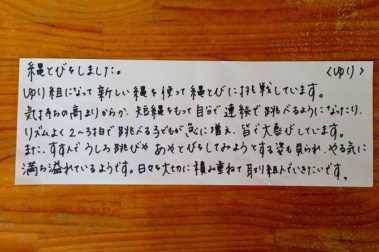 縄とびをしました。 〈ゆり〉
ゆり組になって新しい縄を使って縄とびに挑戦しています。
気持ちの高まりからか、短縄をもって自分で連続で跳べるようになたり、
リズムよく2〜3拍で跳べる子どもが急に増え、皆で大喜びしています。
また、すすんでうしろ跳びやあやとびをしてみようとする姿も見られ、やる気に
満ち溢れているようです。日々を大切に積み重ねて取り組んでいきたいです。